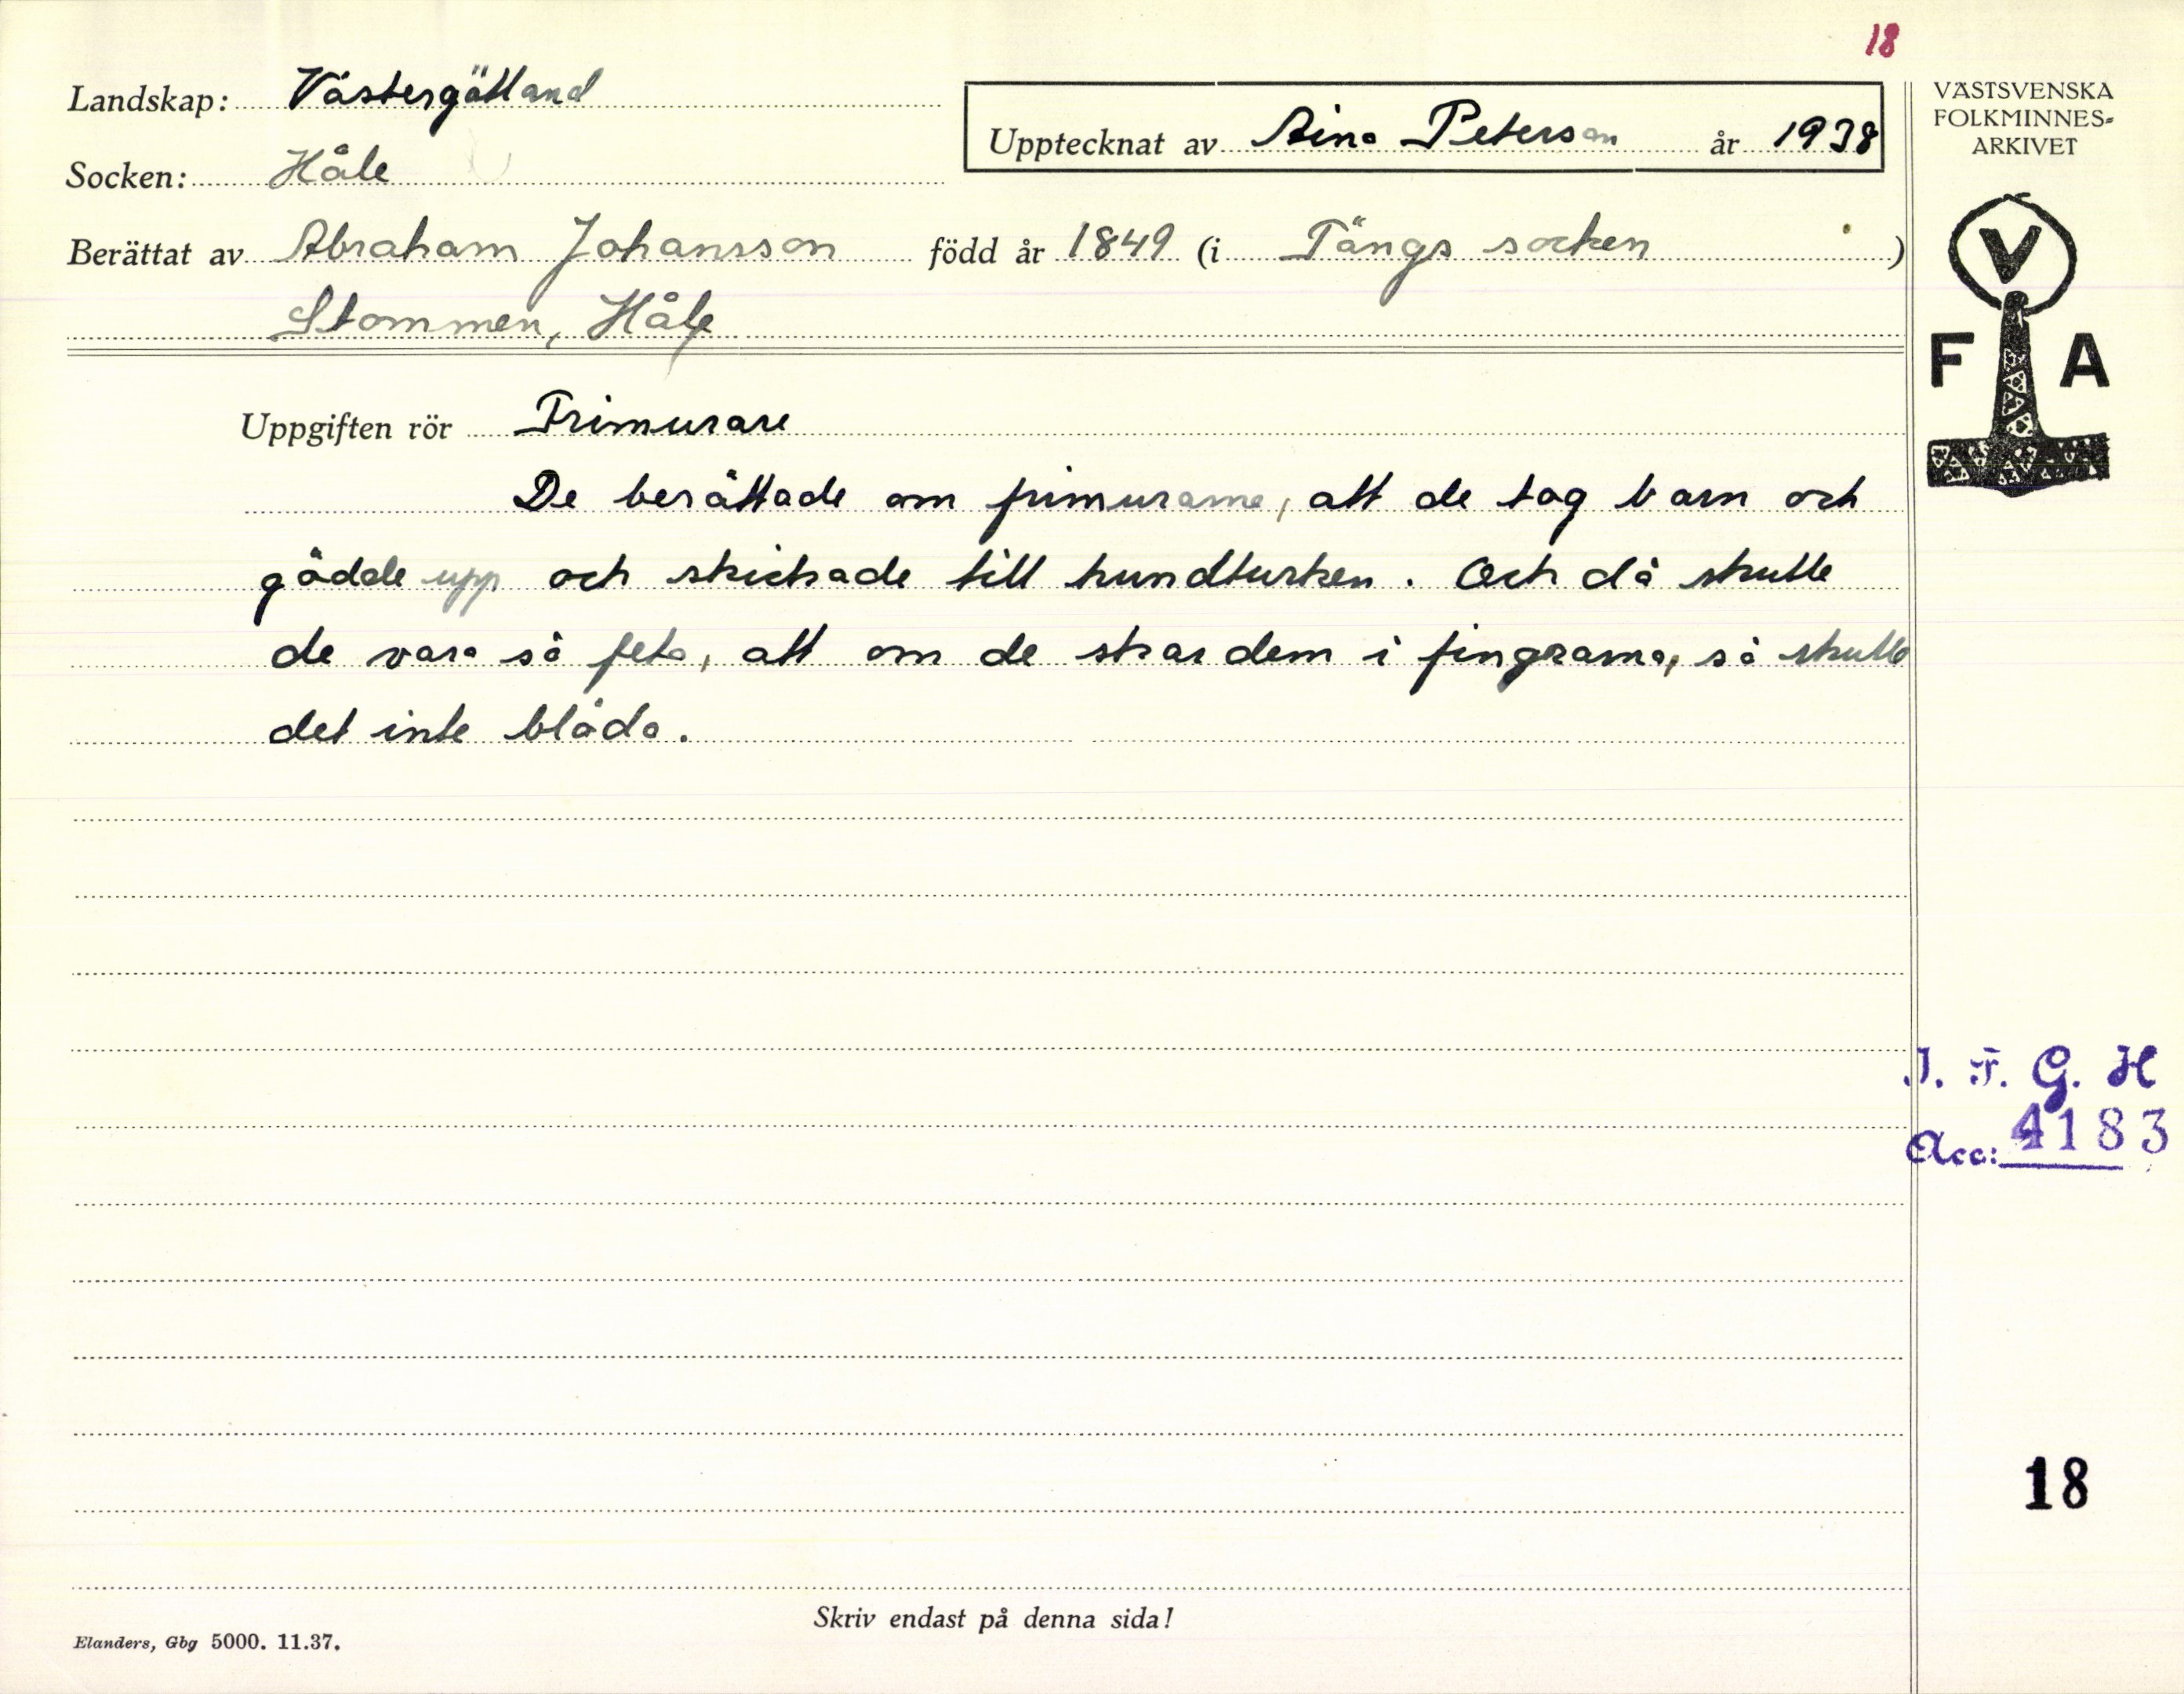 18
Landskap: Västergötland
VÄSTSVENSKA
FOLKMINNES-
ARKIVET
Upptecknat av Aina Peterson år 1938
Socken: Håle
Berättat av Abraham Johansson född år 1849 (i Tängs socken )
Stommen, Håle
V
F A
Uppgiften rör Frimurare
De berättade om frimurarna, att de tog barn och
gödde upp och skickade till hundturken. Och då skulle
de vara så feta, att om de skar dem i fingrarna, så skulle
det inte blöda.
I. F. G. H
Acc: 4183
18
Skriv endast på denna sida!
Elanders, Gbg 5000. 11.37.